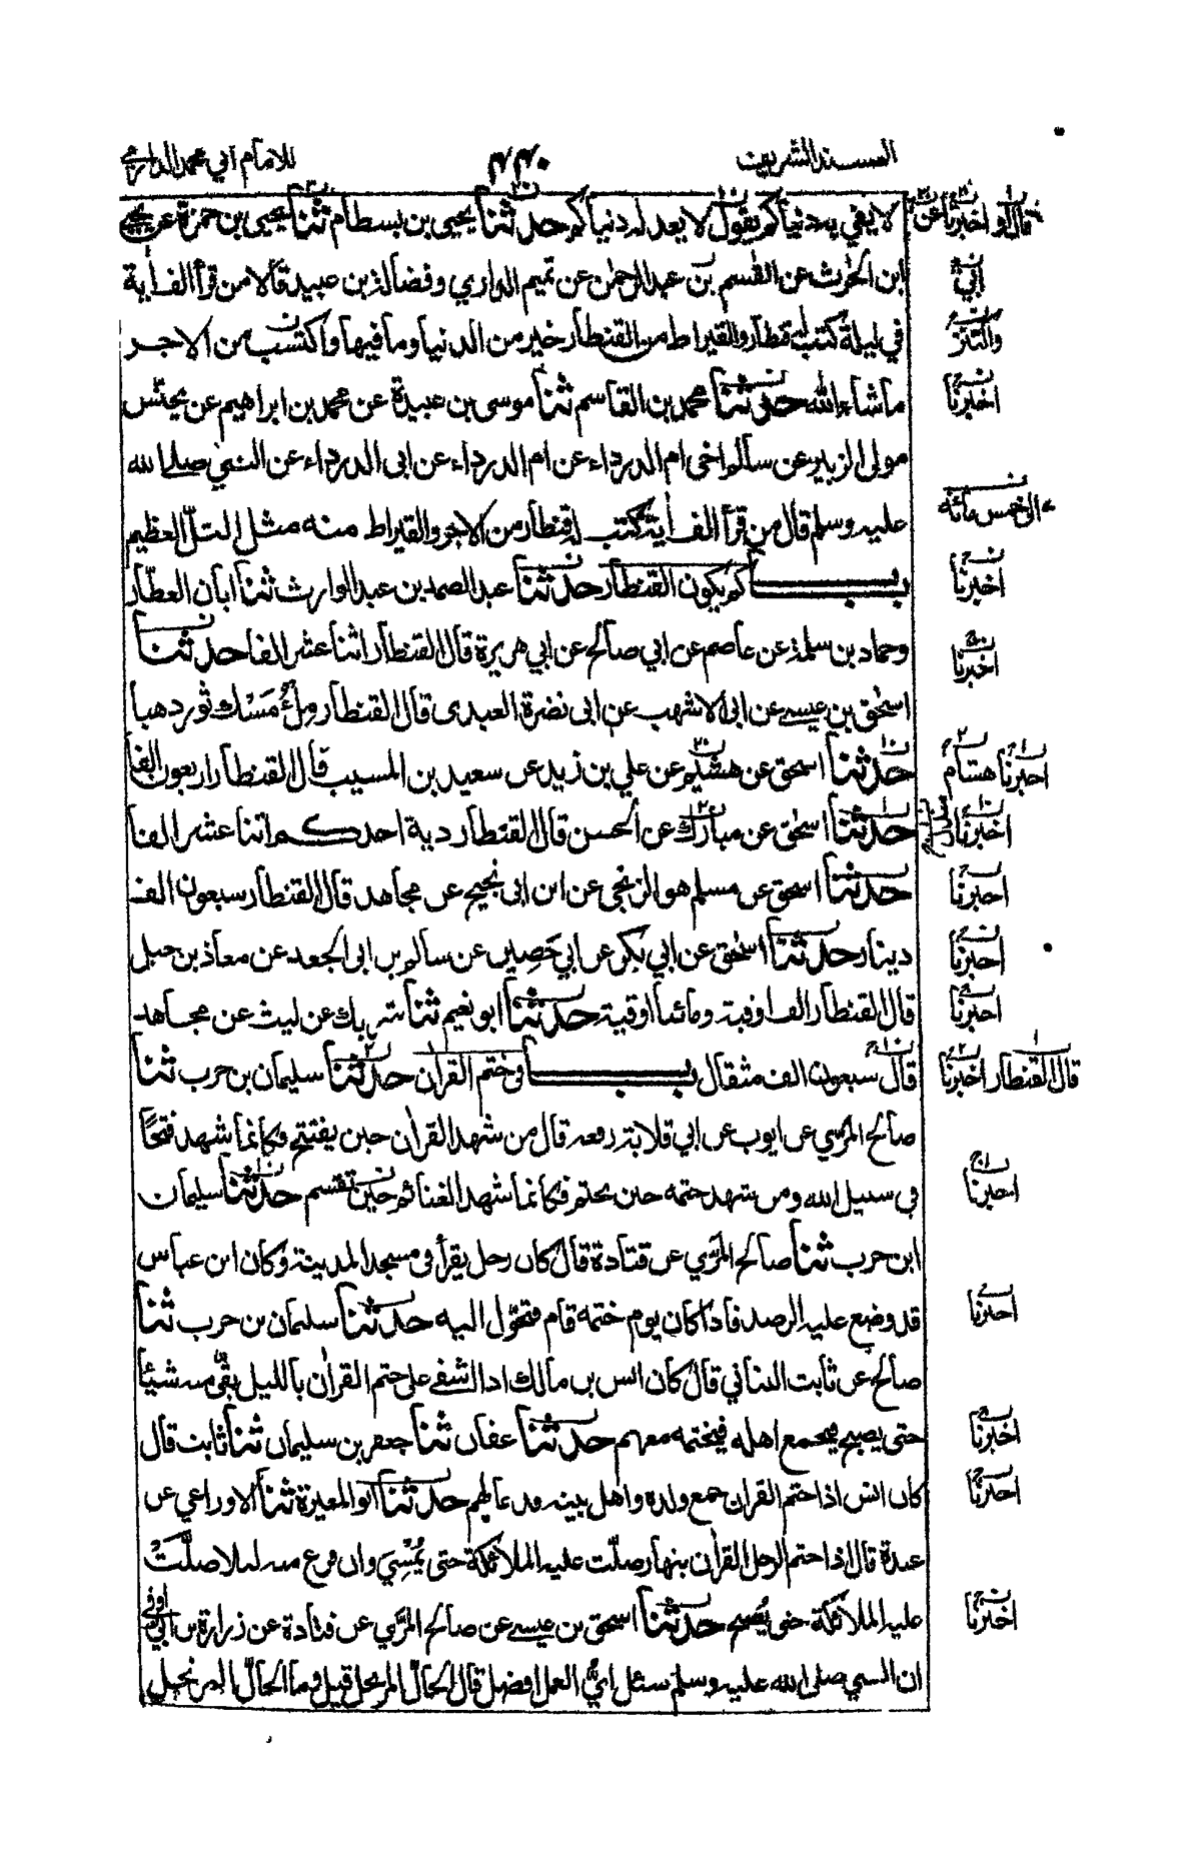 المسند الشريف ۴۴۰ للامام ابي محمد الدارمي
لا يفي به دنياكم يقول لا يعدله دنياكم حدثنا يحيى بن بسطام ثنا يحيى بن حمزة عن يحيى
ابن الحٰرث عن القٰسم بن عبد الرحمٰن عن تميم الداري وفضالة بن عبيد قالا من قرأ الف اٰية
في ليلة كتب له قنطار والقيراط من القنطار خير من الدنيا وما فيها واكتسب من الاجر
ما شاء الله حدثنا محمد بن القاسم ثنا موسى بن عبيدة عن محمد بن ابراهيم عن يحنّس
مولى الزبير عن سالم اخى ام الدرداء عن ام الدرداء عن ابى الدرداء عن النبي صلى الله
عليه وسلم قال من قرأ الف اٰية كتب له قنطار من الاجر والقيراط منه مثل التلّ العظيم
بــــاب كم يكون القنطار حدثنا عبد الصمد بن عبد الوارث ثنا ابان العطّار
وحماد بن سلمة عن عاصم عن ابي صالح عن ابي هريرة قال القنطار اثنا عشر الفا حدثنا
اسحٰق بن عيسى عن ابى الاشهب عن ابى نضرة العبدى قال القنطار مِلْأُ مَسْك ثور ذهبا
حدثنا اسحق عن هشيم عن علي بن زيد عن سعيد بن المسيب قال القنطار اربعون الفا
حدثنا اسحٰق عن مبارك عن الحسن قال القنطار دية احدكم اثنا عشر الفا
حدثنا اسحق عن مسلم هو الزنجى عن ابن ابى نجيح عن مجاهد قال القنطار سبعون الف
دينار حدثنا اسحٰق عن ابي بكر عن ابي حَصِين عن سالم بن ابى الجعد عن معاذ بن جبل
قال القنطار الف اوقية ومائتا اوقية حدثنا ابو نعيم ثنا شريك عن ليث عن مجاهد
قال سبعون الف مثقال بــــاب في ختم القراٰن حدثنا سليمان بن حرب ثنا
صالح المرّي عن ايوب عن ابي قلابة رفعه قال من شهد القراٰن حين يفتتح فكانما شهد فتحًا
في سبيل الله ومن شهد ختمه حين يختم فكانما شهد الغنائم حين تقسم حدثنا سليمان
ابن حرب ثنا صالح المرّي عن قتادة قال كان رجل يقرأ في مسجد المدينة وكان ابن عباس
قد وضع عليه الرصد فاذا كان يوم ختمه قام فتحوّل اليه حدثنا سليمان بن حرب ثنا
صالح عن ثابت البناني قال كان انس بن مالك اذا اشفى على ختم القراٰن بالليل بقّى منه شيئًا
حتى يصبح فيجمع اهله فيختمه معهم حدثنا عفان ثنا جعفر بن سليمان ثنا ثابت قال
كان انس اذا ختم القراٰن جمع ولده واهل بيته فدعا لهم حدثنا ابو المغيرة ثنا الاوزاعي عن
عبدة قال اذا ختم الرجل القراٰن بنهار صلّت عليه الملائكة حتى يُمْسِيَ وان فرغ منه ليلا صلّتْ
عليه الملائكة حتى يُصْبح حدثنا اسحق بن عيسى عن صالح المرّي عن قتادة عن زرارة بن ابي اوفى
ان النبي صلى الله عليه وسلم سئل ايُّ العمل افضل قال الحالّ المرتحل قيل وما الحالّ المرتحل
قال و اخبرنا عن
ابي
اخبرنا
الى خمس مائة
اخبرنا
اخبرنا
اخبرنا هشام
اخبرنا
اخبرنا
اخبرنا
اخبرنا
قال القنطار اخبرنا
اخبرنا
اخبرنا
اخبرنا
اخبرنا
اخبرنا